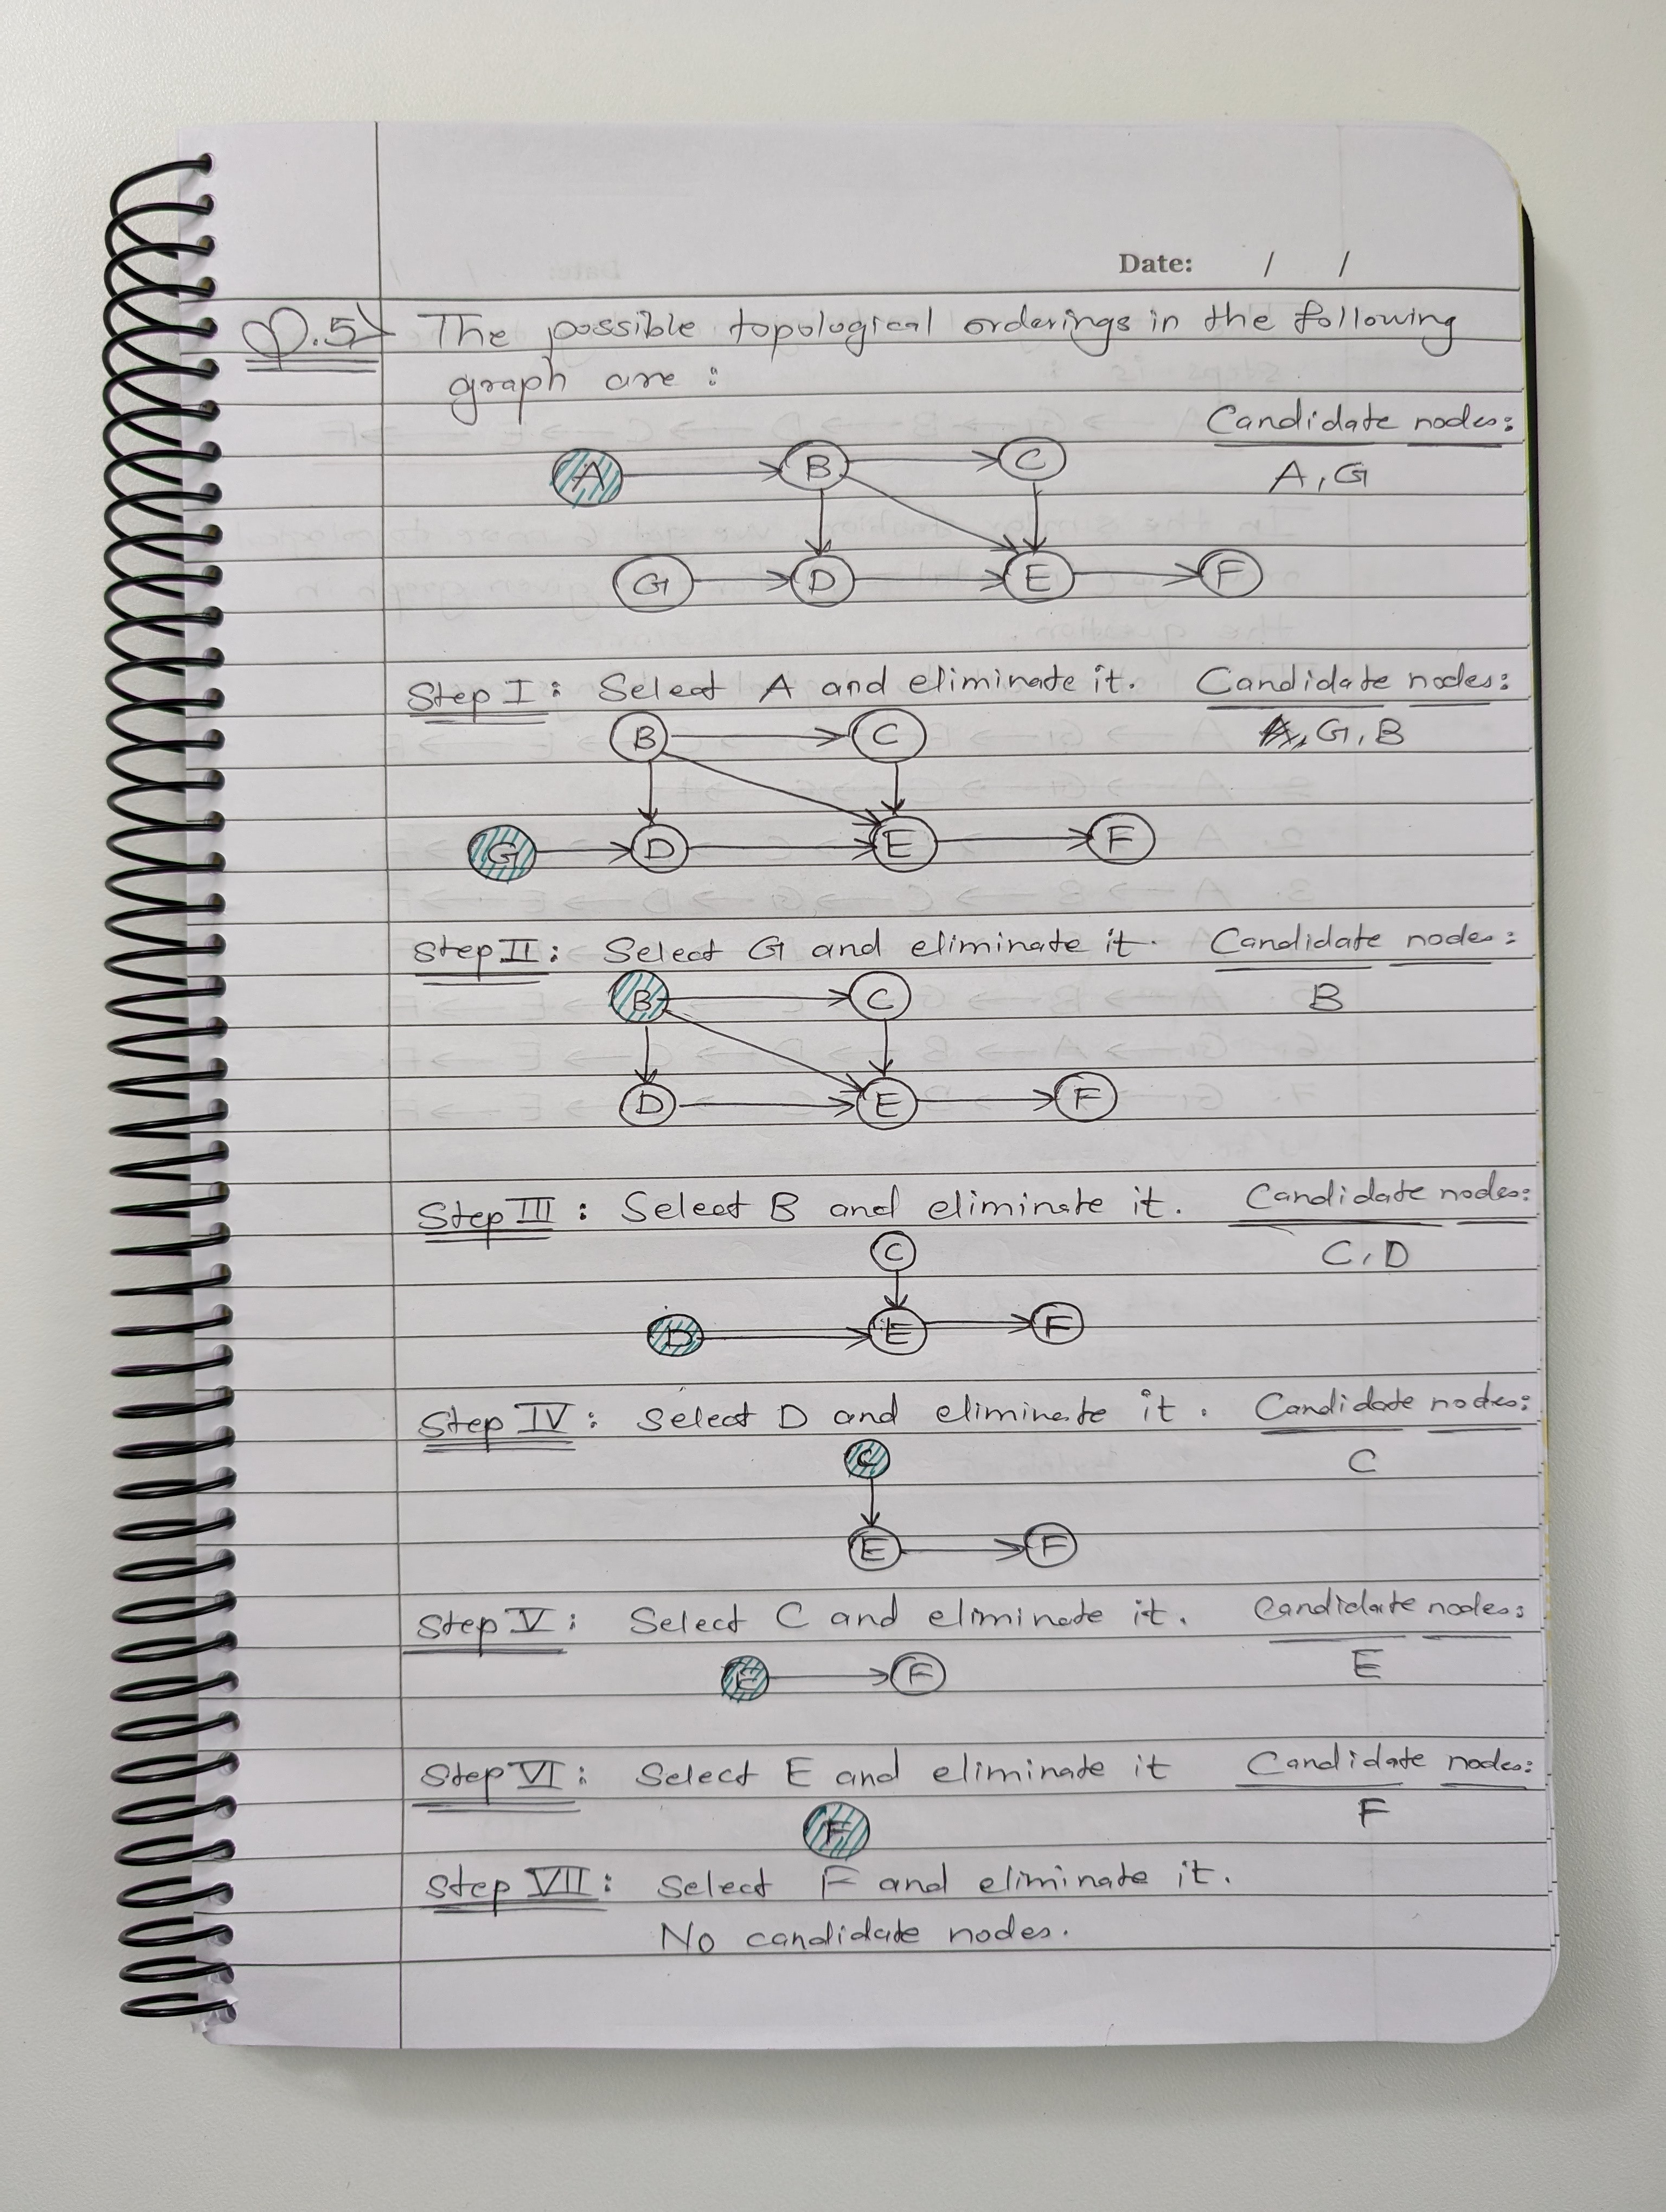 Date: / /
Q.5> The possible topological orderings in the following
graph are :
Candidate nodes:
A B C
A, G
G D E F
Step I : Select A and eliminate it. Candidate nodes:
B C
G, B
G D E F
Step II : Select G and eliminate it. Candidate nodes:
B C
B
D E F
Step III : Select B and eliminate it. Candidate nodes:
C
C, D
D E F
Step IV : Select D and eliminate it. Candidate nodes:
C
C
E F
Step V : Select C and eliminate it. Candidate nodes:
E F
E
Step VI : Select E and eliminate it Candidate nodes:
F
F
Step VII : Select F and eliminate it.
No candidate nodes.